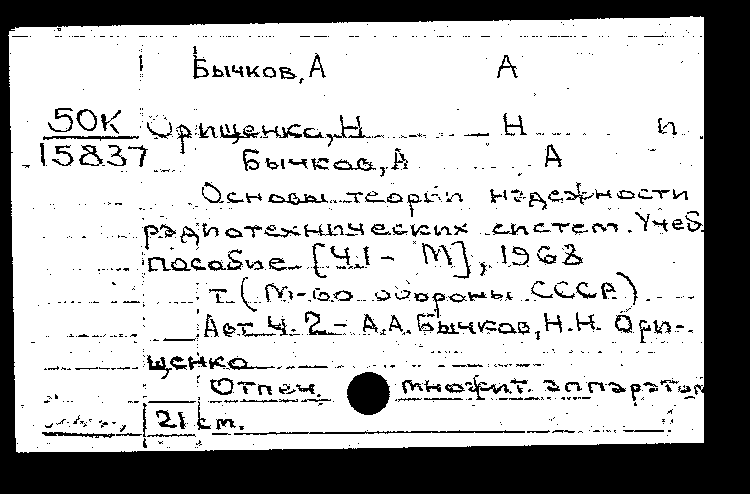 Бычков, А А
50К
15837
Орищенко, Н Н и
Бычков, А А
Основы теории надежности
радиотехнических систем. Учеб.
пособие [Ч.1 - М], 1968
т. (М-во обороны СССР)
Авт. Ч. 2 - А.А. Бычков, Н.Н. Ори-
щенко
Отпеч. множит. аппаратом
21 см.